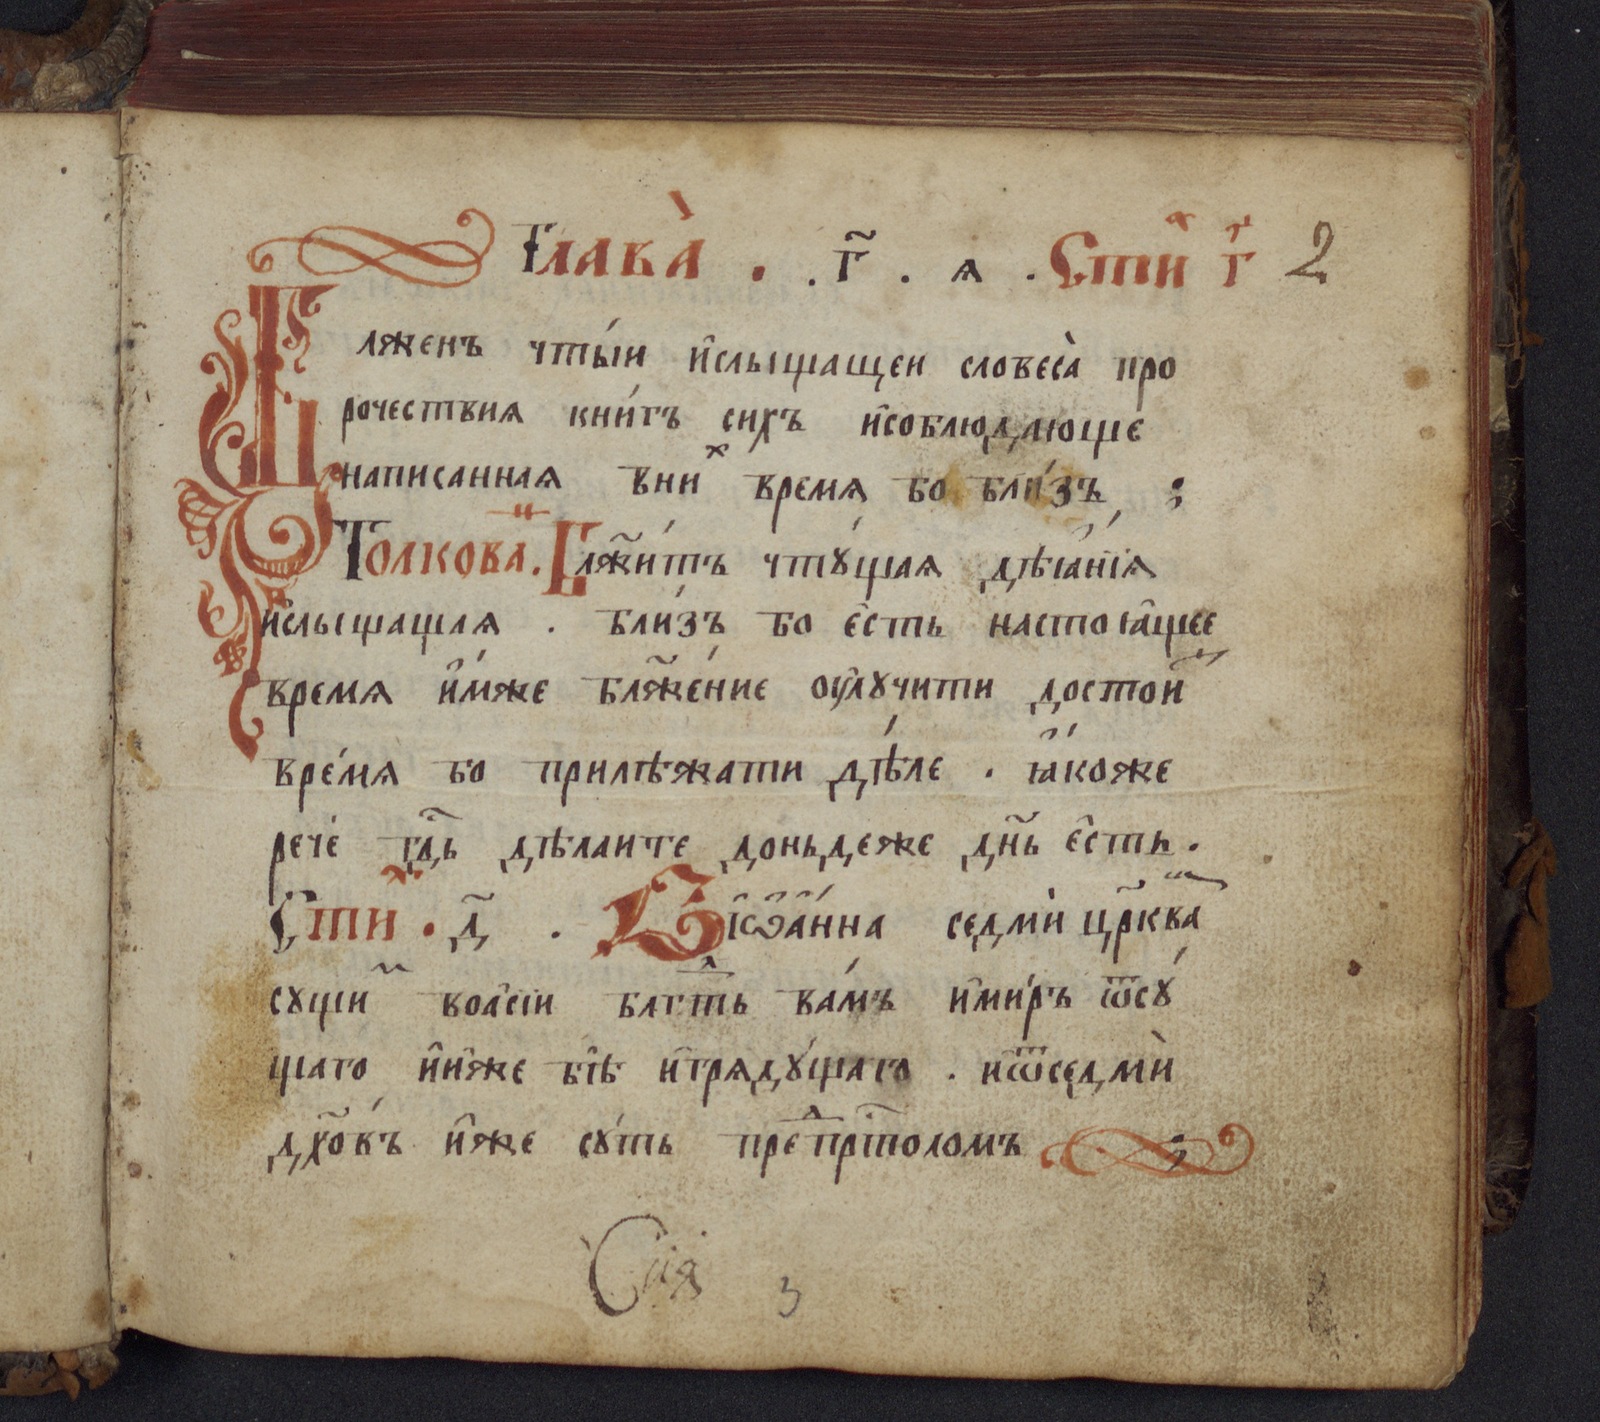 Глава̀ . . г҃ . ѧ . Стиⷯ г҃ 2
Блженъ чты́и и҆слышащеи словеса̀ про
рочествиѧ кни́гъ сихъ и҆соблюдающе
написаннаѧ вниⷯ времѧ бо бли́зъ ;
Толковаⷩ . Блж҃и́тъ чтꙋ́щаѧ дѣꙗ́нїѧ
и҆слышащаѧ . бли́зъ бо є҆сть настоꙗ҆щее
времѧ и҆́мже блж҃е́ние оу҆лꙋчити достоиⷩ
вре́мѧ бо прилѣжати дѣ́ле . ꙗ҆́коже
рече́ гд҃ь дѣлаите доньдеже дн҃ь є҆сть .
Стиⷯ . д҃ . Ѿ і҆ѡ҆а҆́нна седми̇ црк҃ваⷨ
сꙋщиⷨ воа҆сїи блгⷣть ва́мъ и҆ми́ръ ѿсꙋ́
щаго и҆и҆́же бѣ̑ и҆грѧдꙋ́щаго . иѿседми̇
дх҃о́въ и҆̀же сꙋ́ть преⷣпрⷭ҇толомъ ;
Сиѧ 3